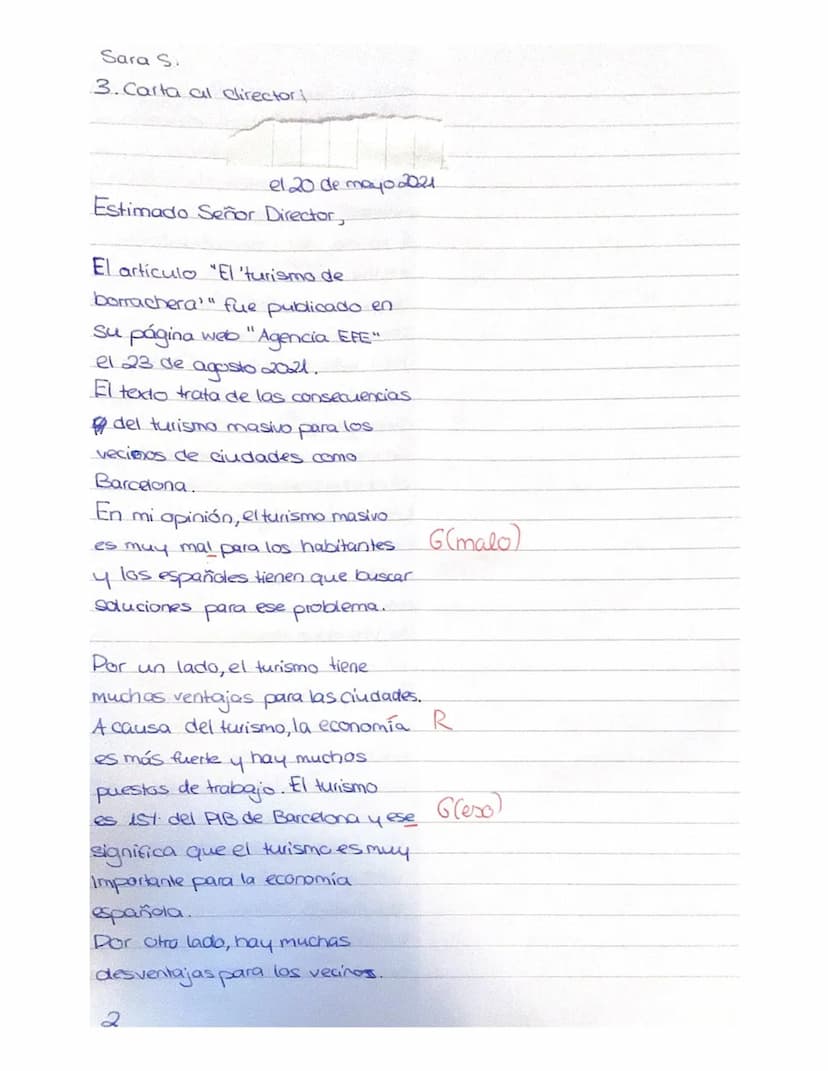 Sara S.
3. Carta al director:
el 20 de mayo 2021
Estimado Señor Director,
El artículo "El 'turismo de
borrachera'" fue publicado en
su página web "Agencia EFE"
el 23 de agosto 2021.
El texto trata de las consecuencias
del turismo masivo para los
vecinos de ciudades como
Barcelona.
En mi opinión, el turismo masivo
es muy mal para los habitantes G(malo)
y los españoles tienen que buscar
soluciones para ese problema.
Por un lado, el turismo tiene
muchas ventajas para las ciudades.
A causa del turismo, la economía R
es más fuerte y hay muchos
puestos de trabajo. El turismo
es 15% del PIB de Barcelona y ese G(eso)
significa que el turismo es muy
importante para la economía
española.
Por otro lado, hay muchas
desventajas para los vecinos.
2